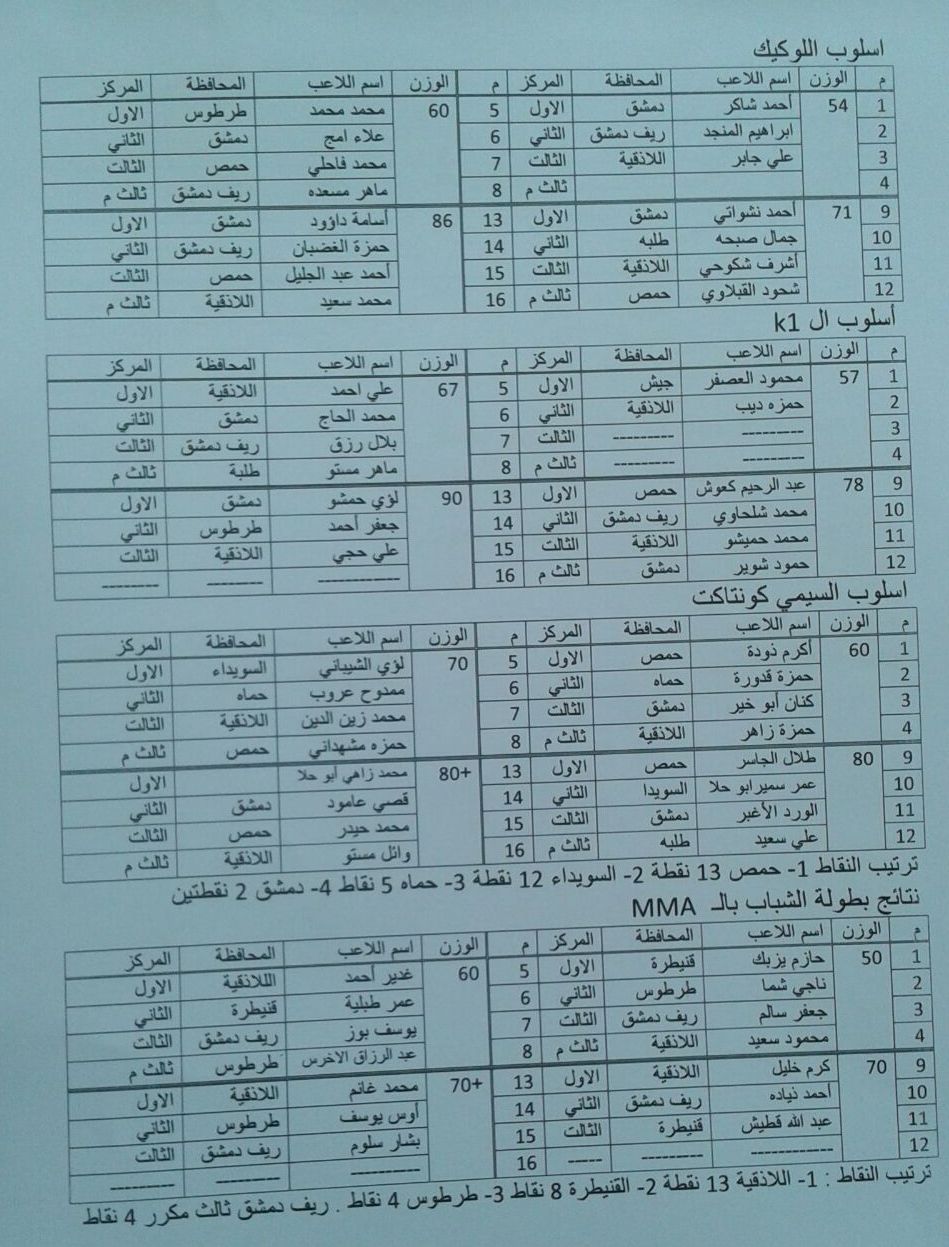 اسلوب اللوكيك
م الوزن اسم اللاعب المحافظة المركز م الوزن اسم اللاعب المحافظة المركز
1 54 أحمد شاكر دمشق الاول 5 60 محمد محمد طرطوس الاول
2 ابراهيم المنجد ريف دمشق الثاني 6 علاء امج دمشق الثاني
3 علي جابر اللاذقية الثالث 7 محمد فاحلي حمص الثالث
4 ثالث م 8 ماهر مسعده ريف دمشق ثالث م
9 71 أحمد نشواتي دمشق الاول 13 86 أسامة داؤود دمشق الاول
10 جمال صبحه طلبه الثاني 14 حمزة الغضبان ريف دمشق الثاني
11 أشرف شكوحي اللاذقية الثالث 15 أحمد عبد الجليل حمص الثالث
12 شحود القبلاوي حمص ثالث م 16 محمد سعيد اللاذقية ثالث م
أسلوب ال k1
م الوزن اسم اللاعب المحافظة المركز م الوزن اسم اللاعب المحافظة المركز
1 57 محمود العصفر جيش الاول 5 67 علي احمد اللاذقية الاول
2 حمزه ديب اللاذقية الثاني 6 محمد الحاج دمشق الثاني
3 --------- --------- الثالث 7 بلال رزق ريف دمشق الثالث
4 --------- --------- ثالث م 8 ماهر مستو طلبة ثالث م
9 78 عبد الرحيم كعوش حمص الاول 13 90 لؤي حمشو دمشق الاول
10 محمد شلحاوي ريف دمشق الثاني 14 جعفر أحمد طرطوس الثاني
11 محمد حميشو اللاذقية الثالث 15 علي حجي اللاذقية الثالث
12 حمود شوير دمشق ثالث م 16 ------------ -------- --------
اسلوب السيمي كونتاكت
م الوزن اسم اللاعب المحافظة المركز م الوزن اسم اللاعب المحافظة المركز
1 60 أكرم ذودة حمص الاول 5 70 لؤي الشيباني السويداء الاول
2 حمزة قدورة حماه الثاني 6 ممدوح عروب حماه الثاني
3 كنان أبو خير دمشق الثالث 7 محمد زين الدين اللاذقية الثالث
4 حمزة زاهر اللاذقية ثالث م 8 حمزه مشهداني حمص ثالث م
9 80 طلال الجاسر حمص الاول 13 80+ محمد زاهي أبو حلا الاول
10 عمر سميرابو حلا السويدا الثاني 14 قصي عامود دمشق الثاني
11 الورد الأغبر دمشق الثالث 15 محمد حيدر حمص الثالث
12 علي سعيد طلبه ثالث م 16 وائل مستو اللاذقية ثالث م
ترتيب النقاط 1- حمص 13 نقطة 2- السويداء 12 نقطة 3- حماه 5 نقاط 4- دمشق 2 نقطتين
نتائج بطولة الشباب بالـ MMA
م الوزن اسم اللاعب المحافظة المركز م الوزن اسم اللاعب المحافظة المركز
1 50 حازم يزبك قنيطرة الاول 5 60 غدير أحمد اللاذقية الاول
2 ناجي شما طرطوس الثاني 6 عمر طبلية قنيطرة الثاني
3 جعفر سالم ريف دمشق الثالث 7 يوسف بوز ريف دمشق الثالث
4 محمود سعيد اللاذقية ثالث م 8 عبد الرزاق الاخرس طرطوس ثالث م
9 70 كرم خليل اللاذقية الاول 13 70+ محمد غانم اللاذقية الاول
10 أحمد ذياده ريف دمشق الثاني 14 أوس يوسف طرطوس الثاني
11 عبد الله قطيش قنيطرة الثالث 15 بشار سلوم ريف دمشق الثالث
12 ------------ --------- ----- 16 ---------- --------- ---------
ترتيب النقاط : 1- اللاذقية 13 نقطة 2- القنيطرة 8 نقاط 3- طرطوس 4 نقاط . ريف دمشق ثالث مكرر 4 نقاط